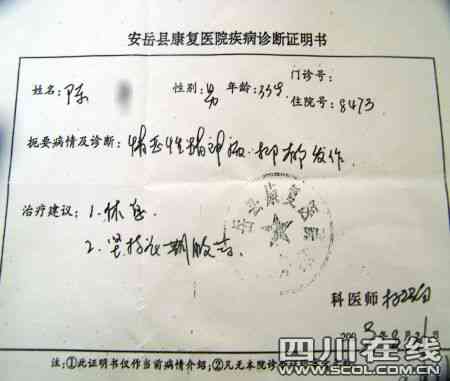 安岳县康复医院疾病诊断证明书
门诊号：
姓名：陈 性别：男 年龄：33岁
住院号：8473
扼要病情及诊断：情感性精神病.抑郁发作.
治疗建议：1.休息
2.坚持长期服药.
安岳县康复医院
科医师
200 年 月 日
注：①此证明书仅作当前病情介绍；②凡无本院诊
四川在线
WWW.SCOL.COM.CN